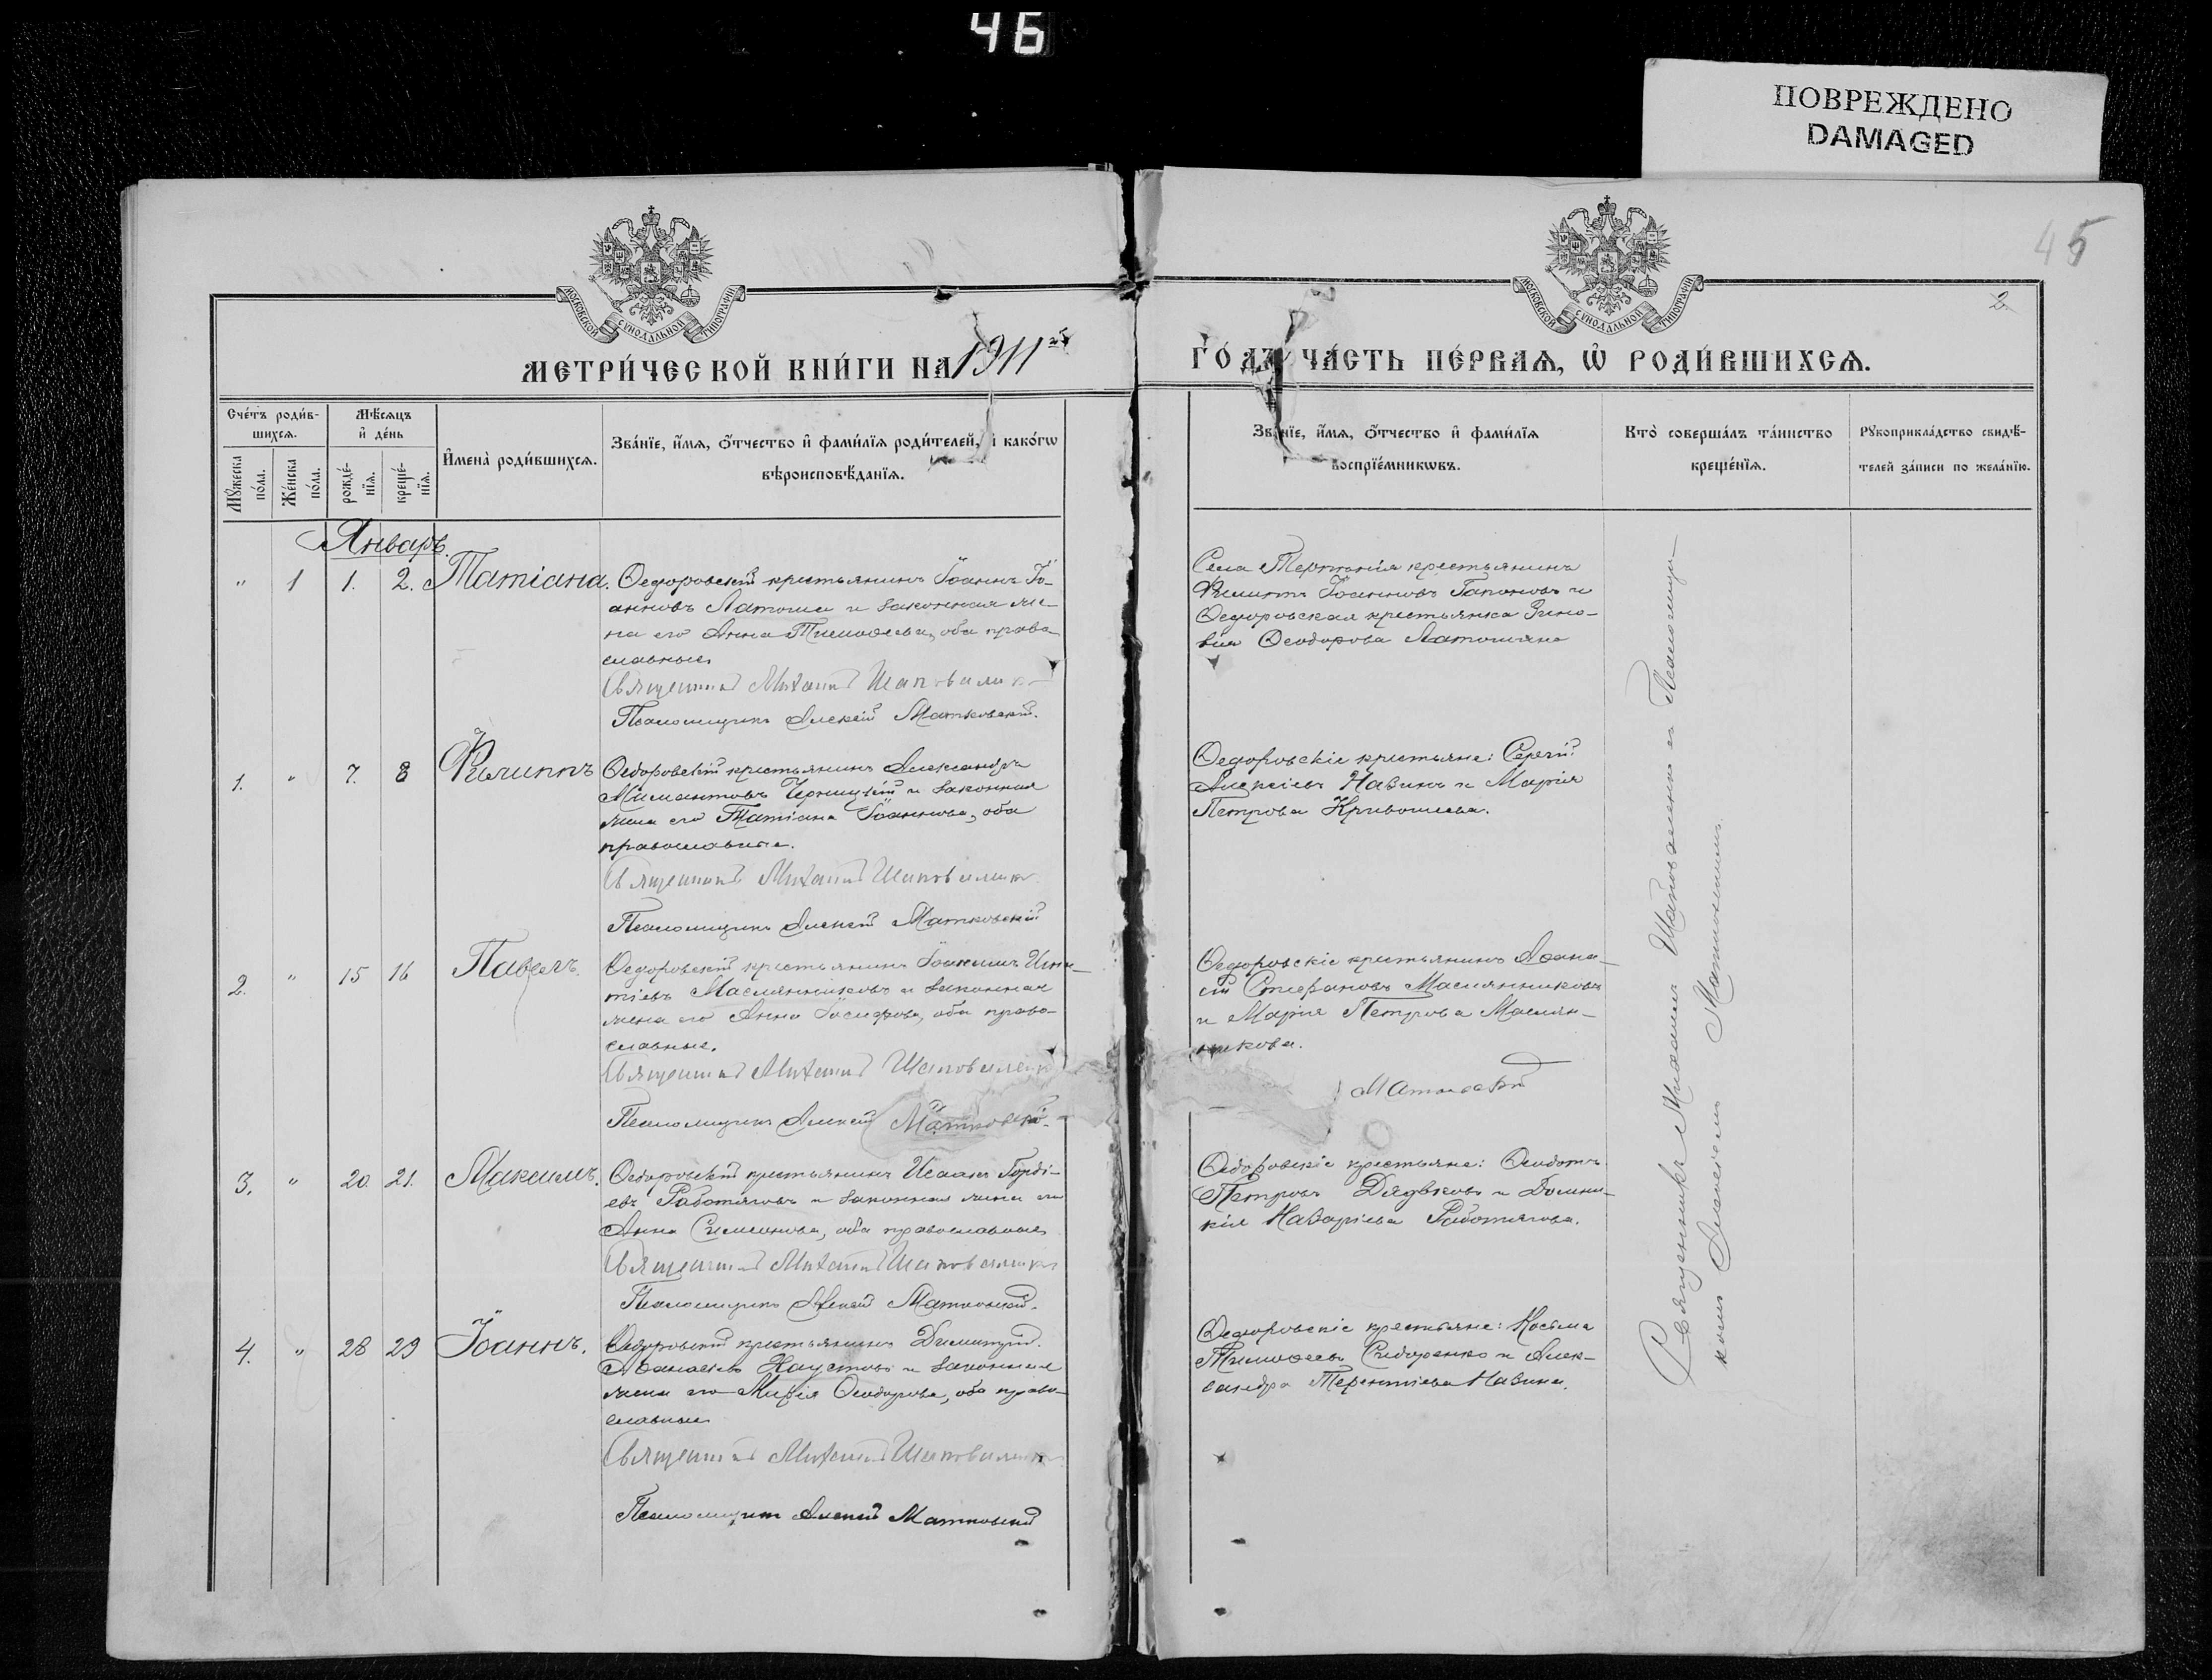 46
ПОВРЕЖДЕНО
DAMAGED
45
2.
МОСКОВСКОЙ СѴНОДАЛЬНОЙ ТИПОГРАФІИ
МОСКОВСКОЙ СѴНОДАЛЬНОЙ ТИПОГРАФІИ
МЕТРИ́ЧЕСКОЙ КНИ́ГИ НА 1911
ГО́ДЪ ЧА́СТЬ ПЕ́РВАѦ, Ѽ РОДИ́ВШИХСѦ.
Сче́тъ роди́в-
шихсѧ.
Мꙋ́жеска по́ла.
Же́нска по́ла.
Мѣ́сѧцъ
и҆ де́нь
рожде́-
нїѧ.
креще́-
нїѧ.
И҆мена̀ роди́вшихсѧ.
Зва́нїе, и҆́мѧ, ѻ҆́тчество и҆ фами́лїѧ роди́телей, и҆ како́гѡ
вѣроисповѣ́данїѧ.
Зва́нїе, и҆́мѧ, ѻ҆́тчество и҆ фами́лїѧ
воспрїе́мникѡвъ.
Кто̀ соверша́лъ та́инство
креще́нїѧ.
Рꙋкоприкла́дство свидѣ́-
телей за́писи по жела́нїю.
Январь.
" 1 1. 2. Татіана.
Ѳедоровскій крестьянинъ Іоаннъ Іо-
анновъ Латоша и законная же-
на его Анна Тимоѳеева, оба право
славные.
Священникъ Михаилъ Шаповаленко
Псаломщикъ Алексій Матковскій.
Села крестьянинъ
Филиппъ Іоанновъ Гапоновъ и
Ѳедоровская крестьянка Зино-
вія Ѳеодорова
1. " 7. 8 Филиппъ
Ѳедоровскій крестьянинъ Александръ
и законная
жена его Татіана Іоаннова, оба
православные.
Священникъ Михаилъ Шаповаленко
Псаломщикъ Алексій Матковскій
Ѳедоровскіе крестьяне: Сергій
Алексіевъ Навинъ и Марія
Петрова Кривошеева.
2. " 15 16 Павелъ.
Ѳедоровскій крестьянинъ Іоакимъ Игна-
тіевъ Маслянниковъ и законная
жена его Анна Іосифова, оба право-
славные.
Священникъ Михаилъ Шаповаленко
Псаломщикъ Алексій Матковскій.
Ѳедоровскіе крестьянинъ Аѳана-
сій Стефановъ Маслянниковъ
и Марія Петрова Маслян-
никова.
Матковскій
3. " 20. 21. Максимъ.
Ѳедоровскій крестьянинъ Исаакъ Горді-
евъ Работяговъ и законная жена его
Анна Симеонова, оба православные
Священникъ Михаилъ Шаповаленко
Псаломщикъ Алексій Матковскій.
Ѳедоровскіе крестьяне: Ѳеодотъ
Петровъ Дядьковъ и Домни-
кія Назаріева Работягова.
4. " 28 29 Іоаннъ.
Ѳедоровскій крестьянинъ Димитрій
Хаустовъ и законная
жена его Марія Ѳеодорова, оба право-
славные
Священникъ Михаилъ Шаповаленко
Псаломщикъ Алексій Матковскій
Ѳедоровскіе крестьяне: Косьма
Тимоѳеевъ Сидоренко и Алек-
сандра Терентіева Навина.
Священникъ Михаилъ Шаповаленко съ Псаломщи-
комъ Алексіемъ Матковскимъ.